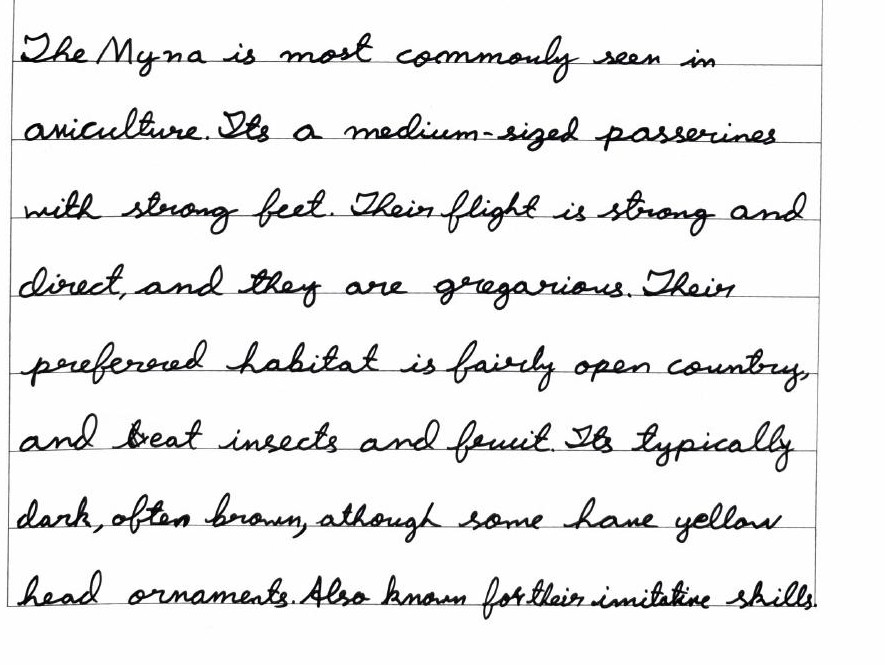 The Myna is most commonly seen in
aviculture. Its a medium-sized passerines
with strong feet. Their flight is strong and
direct, and they are gregarious. Their
preferered habitat is fairly open country,
and beat insects and fruit. Its typically
dark, often brown, athough some have yellow
head ornaments. Also known for their imitative skills.